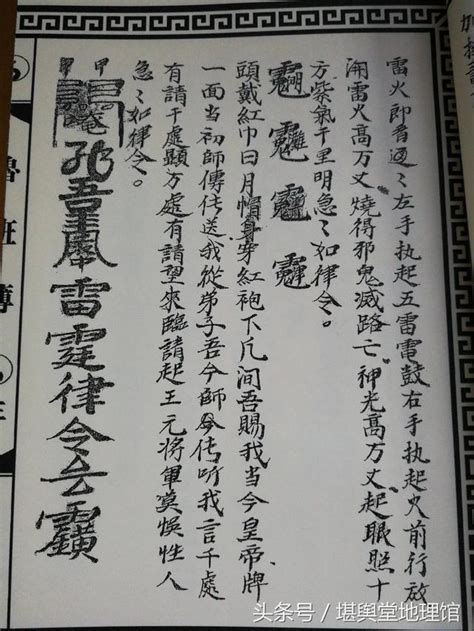 雷火郎君過〻左手執起五雷電鼓右手執起火前行放
洞雷火高万丈燒得邪鬼滅路亡神光高万丈起眼照十
方紫氣千里明急〻如律令。
頭戴紅巾日月帽身穿紅袍下凡间吾賜我当今皇帝牌
一面当初師傳传送我從弟子吾今師今传听我言千處
有請千處顯方處有請望來臨請起王元將軍莫悞性人
急〻如律令。
吾 雷霆律令
魯班
頭条号/堪舆堂地理馆